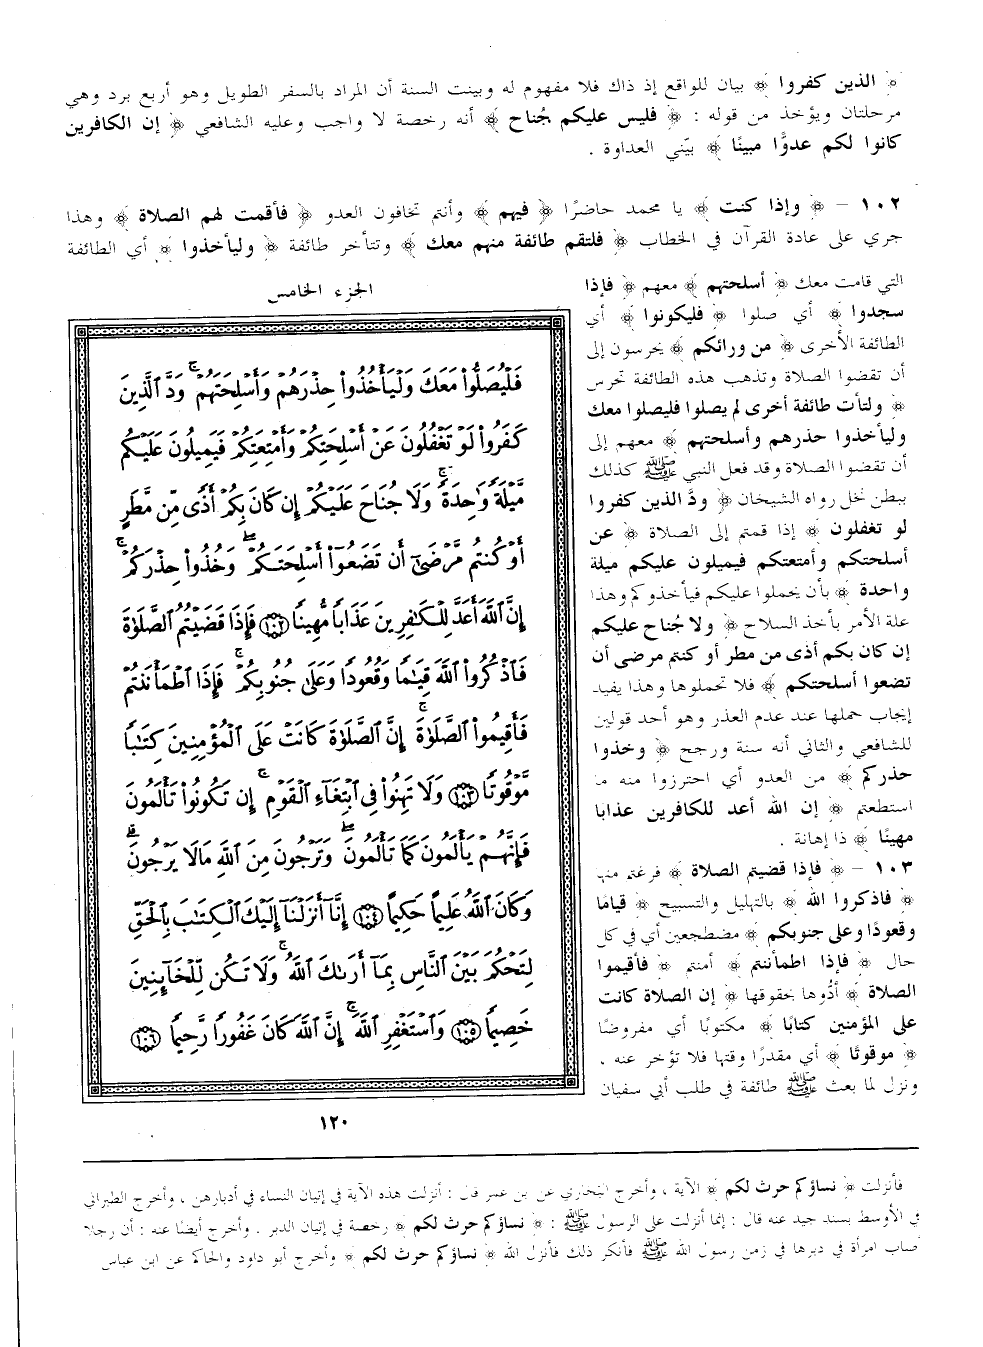 ﴿ الذين كفروا ﴾ بيان للواقع إذ ذاك فلا مفهوم له وبينت السنة أن المراد بالسفر الطويل وهو أربع برد وهي
مرحلتان ويؤخذ من قوله : ﴿ فليس عليكم جُناح ﴾ أنه رخصة لا واجب وعليه الشافعي ﴿ إن الكافرين
كانوا لكم عدوًّا مبينًا ﴾ بيّني العداوة .
١٠٢ - ﴿ وإذا كنت ﴾ يا محمد حاضرًا ﴿ فيهم ﴾ وأنتم تخافون العدو ﴿ فأقمت لهم الصلاة ﴾ وهذا
جري على عادة القرآن في الخطاب ﴿ فلتقم طائفة منهم معك ﴾ وتتأخر طائفة ﴿ وليأخذوا ﴾ أي الطائفة
التي قامت معك ﴿ أسلحتهم ﴾ معهم ﴿ فإذا
سجدوا ﴾ أي صلوا ﴿ فليكونوا ﴾ أي
الطائفة الأخرى ﴿ من ورائكم ﴾ يحرسون إلى
أن تقضوا الصلاة وتذهب هذه الطائفة تحرس
﴿ ولتأت طائفة أخرى لم يصلوا فليصلوا معك
وليأخذوا حذرهم وأسلحتهم ﴾ معهم إلى
أن تقضوا الصلاة وقد فعل النبي ﷺ كذلك
ببطن نخل رواه الشيخان ﴿ ودَّ الذين كفروا
لو تغفلون ﴾ إذا قمتم إلى الصلاة ﴿ عن
أسلحتكم وأمتعتكم فيميلون عليكم ميلة
واحدة ﴾ بأن يحملوا عليكم فيأخذوكم وهذا
علة الأمر بأخذ السلاح ﴿ ولا جُناح عليكم
إن كان بكم أذى من مطر أو كنتم مرضى أن
تضعوا أسلحتكم ﴾ فلا تحملوها وهذا يفيد
إيجاب حملها عند عدم العذر وهو أحد قولين
للشافعي والثاني أنه سنة ورجح ﴿ وخذوا
حذركم ﴾ من العدو أي احترزوا منه ما
استطعتم ﴿ إن الله أعد للكافرين عذابا
مهينًا ﴾ ذا إهانة .
١٠٣ - ﴿ فإذا قضيتم الصلاة ﴾ فرغتم منها
﴿ فاذكروا الله ﴾ بالتهليل والتسبيح ﴿ قيامًا
وقعودًا وعلى جنوبكم ﴾ مضطجعين أي في كل
حال ﴿ فإذا اطمأننتم ﴾ أمنتم ﴿ فأقيموا
الصلاة ﴾ أدُّوها بحقوقها ﴿ إن الصلاة كانت
على المؤمنين كتابًا ﴾ مكتوبًا أي مفروضًا
﴿ موقوتًا ﴾ أي مقدرًا وقتها فلا تؤخر عنه ،
ونزل لما بعث ﷺ طائفة في طلب أبي سفيان
الجزء الخامس
فَلْيُصَلُّوا۟ مَعَكَ وَلْيَأْخُذُوا۟ حِذْرَهُمْ وَأَسْلِحَتَهُمْ ۗ وَدَّ ٱلَّذِينَ
كَفَرُوا۟ لَوْ تَغْفُلُونَ عَنْ أَسْلِحَتِكُمْ وَأَمْتِعَتِكُمْ فَيَمِيلُونَ عَلَيْكُم
مَّيْلَةً وَٰحِدَةً ۚ وَلَا جُنَاحَ عَلَيْكُمْ إِن كَانَ بِكُمْ أَذًى مِّن مَّطَرٍ
أَوْ كُنتُم مَّرْضَىٰٓ أَن تَضَعُوٓا۟ أَسْلِحَتَكُمْ ۖ وَخُذُوا۟ حِذْرَكُمْ ۗ
إِنَّ ٱللَّهَ أَعَدَّ لِلْكَٰفِرِينَ عَذَابًا مُّهِينًا ١٠٢ فَإِذَا قَضَيْتُمُ ٱلصَّلَوٰةَ
فَٱذْكُرُوا۟ ٱللَّهَ قِيَٰمًا وَقُعُودًا وَعَلَىٰ جُنُوبِكُمْ ۚ فَإِذَا ٱطْمَأْنَنتُمْ
فَأَقِيمُوا۟ ٱلصَّلَوٰةَ ۚ إِنَّ ٱلصَّلَوٰةَ كَانَتْ عَلَى ٱلْمُؤْمِنِينَ كِتَٰبًا
مَّوْقُوتًا ١٠٣ وَلَا تَهِنُوا۟ فِى ٱبْتِغَآءِ ٱلْقَوْمِ ۖ إِن تَكُونُوا۟ تَأْلَمُونَ
فَإِنَّهُمْ يَأْلَمُونَ كَمَا تَأْلَمُونَ ۖ وَتَرْجُونَ مِنَ ٱللَّهِ مَا لَا يَرْجُونَ ۗ
وَكَانَ ٱللَّهُ عَلِيمًا حَكِيمًا ١٠٤ إِنَّآ أَنزَلْنَآ إِلَيْكَ ٱلْكِتَٰبَ بِٱلْحَقِّ
لِتَحْكُمَ بَيْنَ ٱلنَّاسِ بِمَآ أَرَىٰكَ ٱللَّهُ ۚ وَلَا تَكُن لِّلْخَآئِنِينَ
خَصِيمًا ١٠٥ وَٱسْتَغْفِرِ ٱللَّهَ ۖ إِنَّ ٱللَّهَ كَانَ غَفُورًا رَّحِيمًا ١٠٦
١٢٠
فأنزلت ﴿ نساؤكم حرث لكم ﴾ الآية ، وأخرج البخاري عن بن عمر قال : أنزلت هذه الآية في إتيان النساء في أدبارهن ، وأخرج الطبراني
في الأوسط بسند جيد عنه قال : إنما أنزلت على الرسول ﷺ : ﴿ نساؤكم حرث لكم ﴾ رخصة في إتيان الدبر . وأخرج أيضًا عنه : أن رجلا
صاب امرأة في دبرها في زمن رسول الله ﷺ فأنكر ذلك فأنزل الله ﴿ نساؤكم حرث لكم ﴾ وأخرج أبو داود والحاكم عن ابن عباس